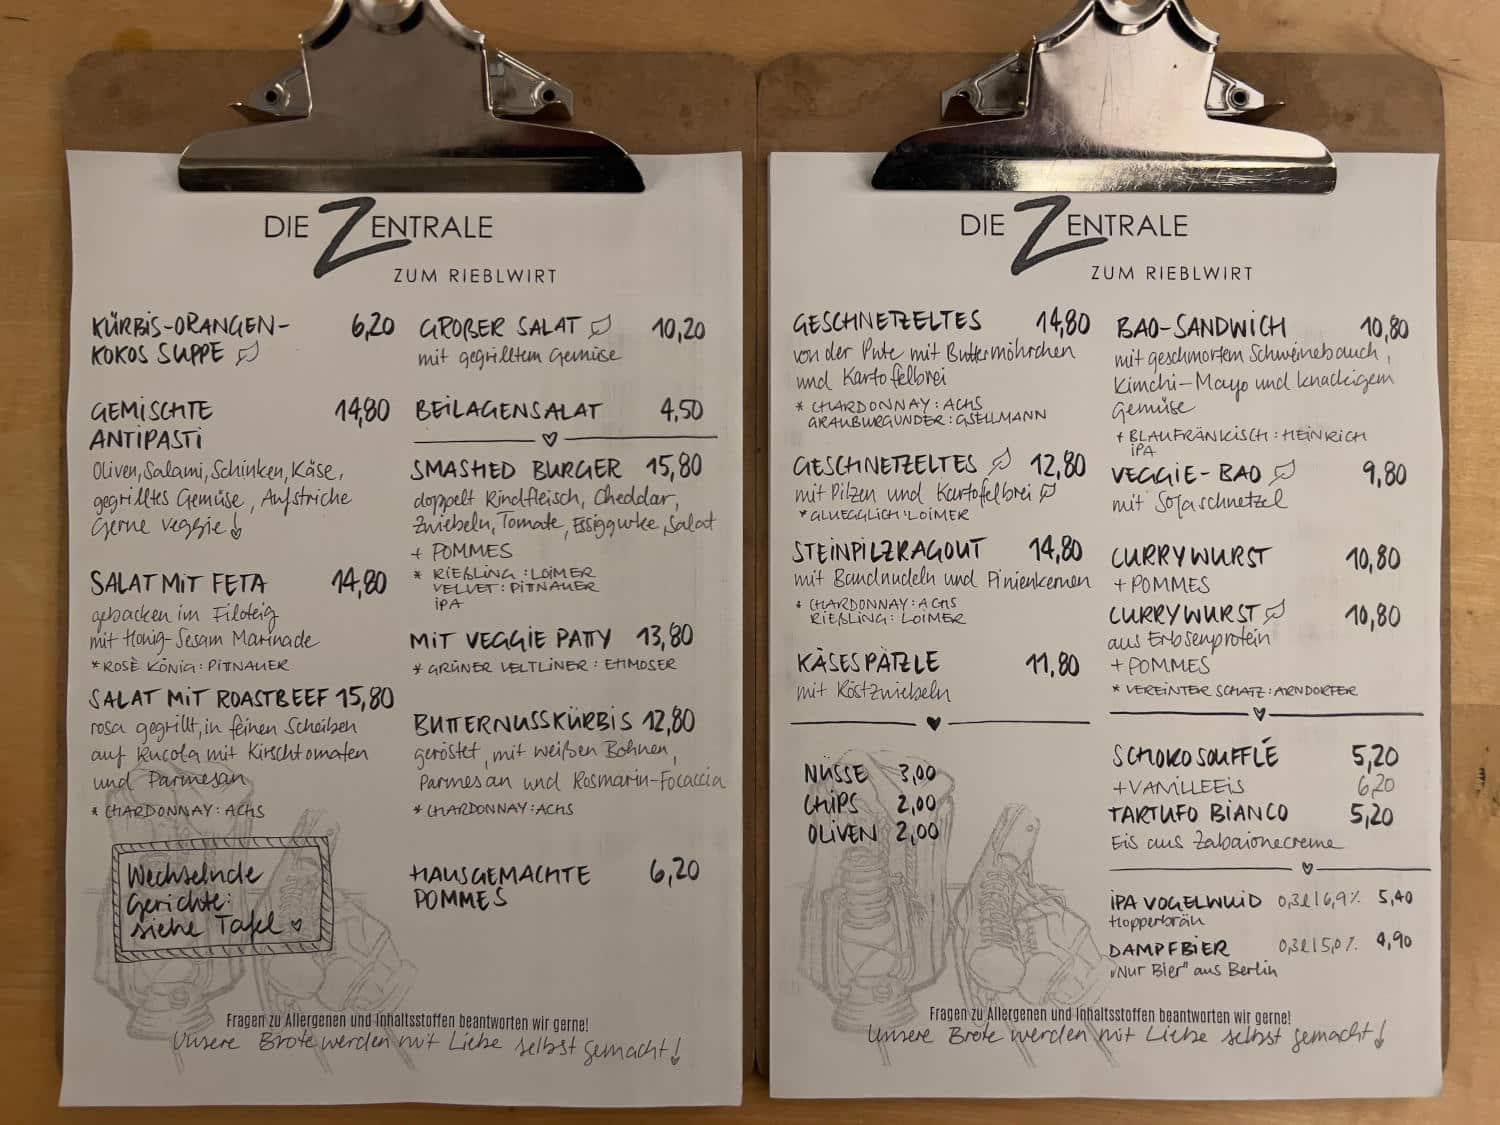 DIE ZENTRALE
ZUM RIEBLWIRT
KÜRBIS-ORANGEN- 6,20
KOKOS SUPPE
GEMISCHTE 14,80
ANTIPASTI
Oliven, Salami, Schinken, Käse,
gegrilltes Gemüse, Aufstriche
Gerne veggie!
SALAT MIT FETA 14,80
gebacken im Filoteig
mit Honig-Sesam Marinade
* ROSÈ KÖNIG: PITNAUER
SALAT MIT ROASTBEEF 15,80
rosa gegrillt, in feinen Scheiben
auf Rucola mit Kirschtomaten
und Parmesan
* CHARDONNAY: ACHS
Wechselnde
Gerichte:
siehe Tafel
GROßER SALAT 10,20
mit gegrilltem Gemüse
BEILAGENSALAT 4,50
SMASHED BURGER 15,80
doppelt Rindfleisch, Cheddar,
Zwiebeln, Tomate, Essiggurke, Salat
+ POMMES
* RIEßLING: LOIMER
VELVET: PITNAUER
IPA
MIT VEGGIE PATTY 13,80
* GRÜNER VELTLINER: ETTMOSER
BUTTERNUSSKÜRBIS 12,80
geröstet, mit weißen Bohnen,
Parmesan und Rosmarin-Focaccia
* CHARDONNAY: ACHS
HAUSGEMACHTE 6,20
POMMES
Fragen zu Allergenen und Inhaltsstoffen beantworten wir gerne!
Unsere Brote werden mit Liebe selbst gemacht!
DIE ZENTRALE
ZUM RIEBLWIRT
GESCHNETZELTES 14,80
von der Pute mit Buttermöhrchen
und Kartoffelbrei
* CHARDONNAY: ACHS
GRAUBURGUNDER: GSELLMANN
GESCHNETZELTES 12,80
mit Pilzen und Kartoffelbrei
* GLUEGGLICH: LOIMER
STEINPILZRAGOUT 14,80
mit Bandnudeln und Pinienkernen
* CHARDONNAY: ACHS
RIEßLING: LOIMER
KÄSESPÄTZLE 11,80
mit Röstzwiebeln
NÜSSE 3,00
CHIPS 2,00
OLIVEN 2,00
BAO-SANDWICH 10,80
mit geschmortem Schweinebauch,
Kimchi-Mayo und knackigem
Gemüse
* BLAUFRÄNKISCH: HEINRICH
IPA
VEGGIE-BAO 9,80
mit Sojaschnetzel
CURRYWURST 10,80
+ POMMES
CURRYWURST 10,80
aus Erbsenprotein
+ POMMES
* VEREINTER SCHATZ: ARNDORFER
SCHOKOSOUFFLÉ 5,20
+ VANILLEEIS 6,20
TARTUFO BIANCO 5,20
Eis aus Zabaionecreme
IPA VOGELWUID 0,3l | 6,9% 5,40
Hopperbräu
DAMPFBIER 0,3l | 5,0% 4,90
"Nur Bier" aus Berlin
Fragen zu Allergenen und Inhaltsstoffen beantworten wir gerne!
Unsere Brote werden mit Liebe selbst gemacht!